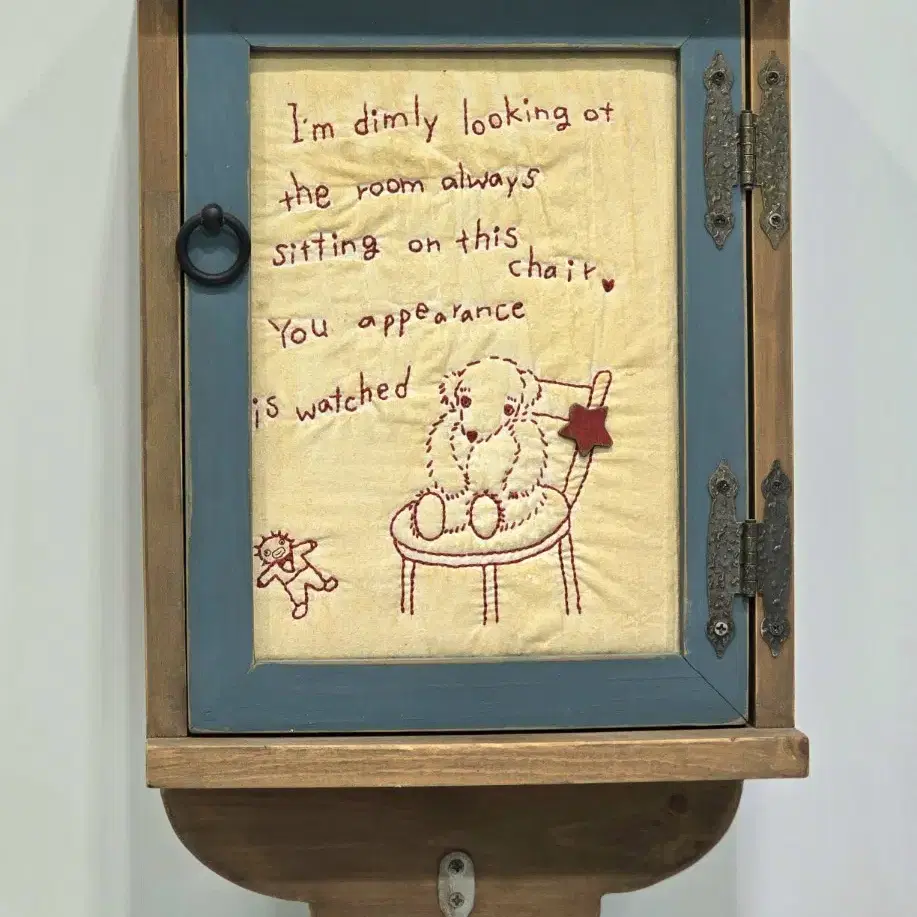 I'm dimly looking at
the room always
sitting on this
chair
You appearance
is watched